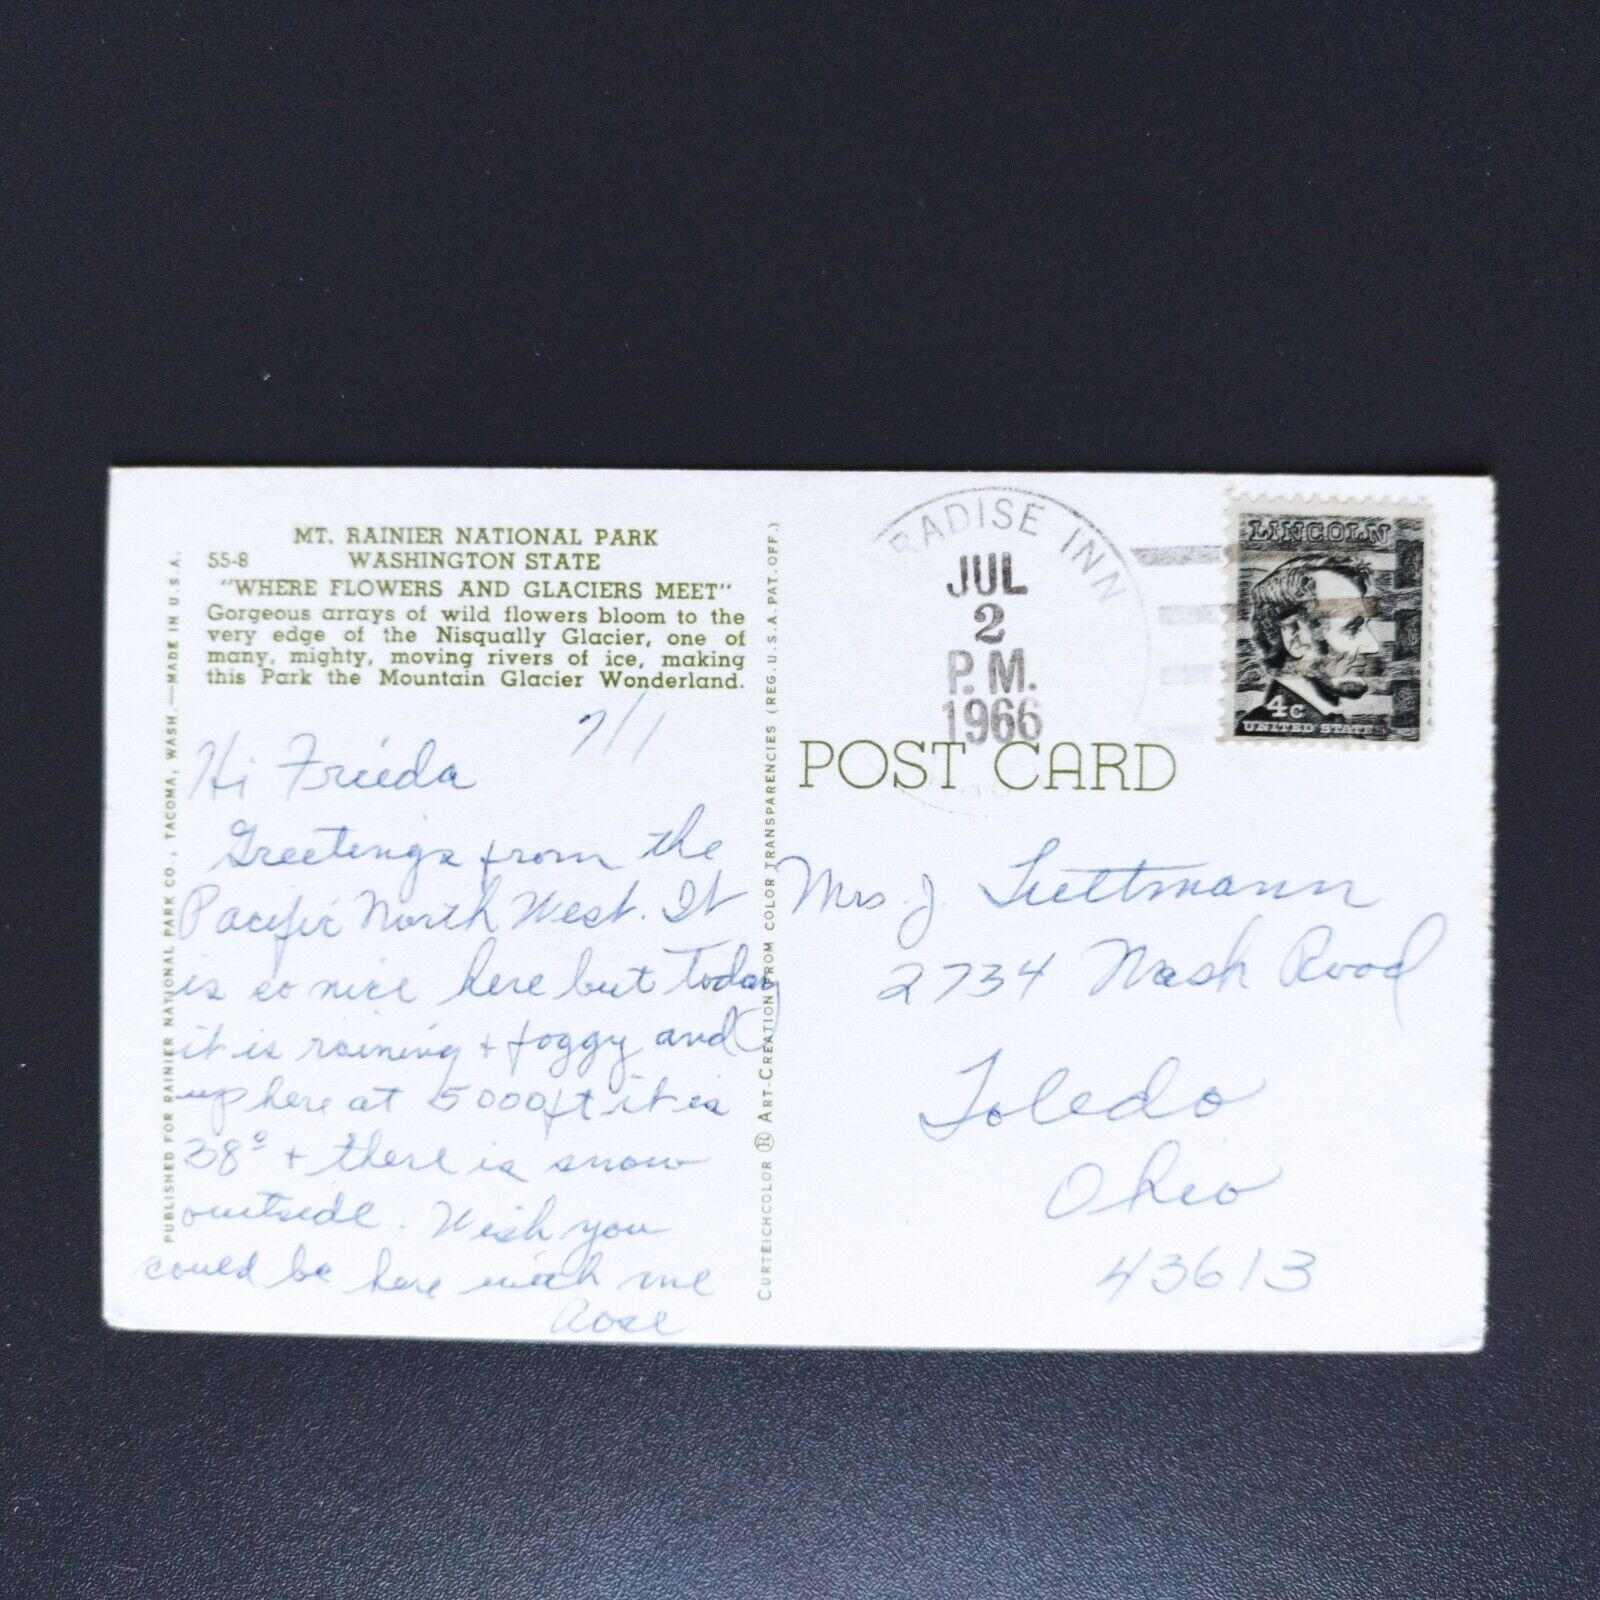 MT. RAINIER NATIONAL PARK
55-8 WASHINGTON STATE
"WHERE FLOWERS AND GLACIERS MEET"
Gorgeous arrays of wild flowers bloom to the
very edge of the Nisqually Glacier, one of
many, mighty, moving rivers of ice, making
this Park the Mountain Glacier Wonderland.
7/1
Hi Frieda
Greetings from the
Pacific North West. It
is so nice here but Today
it is raining + foggy and
up here at 5000 ft it is
38° + there is snow
outside. Wish you
could be here with me
Rose
PUBLISHED FOR RAINIER NATIONAL PARK CO., TACOMA, WASH.—MADE IN U.S.A.
CURTEICHCOLOR ® ART-CREATION FROM COLOR TRANSPARENCIES (REG. U.S.A. PAT. OFF.)
RADISE INN
JUL
2
P.M.
1966
LINCOLN
4c
UNITED STATES
POST CARD
Mrs. J. Luttmann
2734 Nash Road
Toledo
Ohio
43613